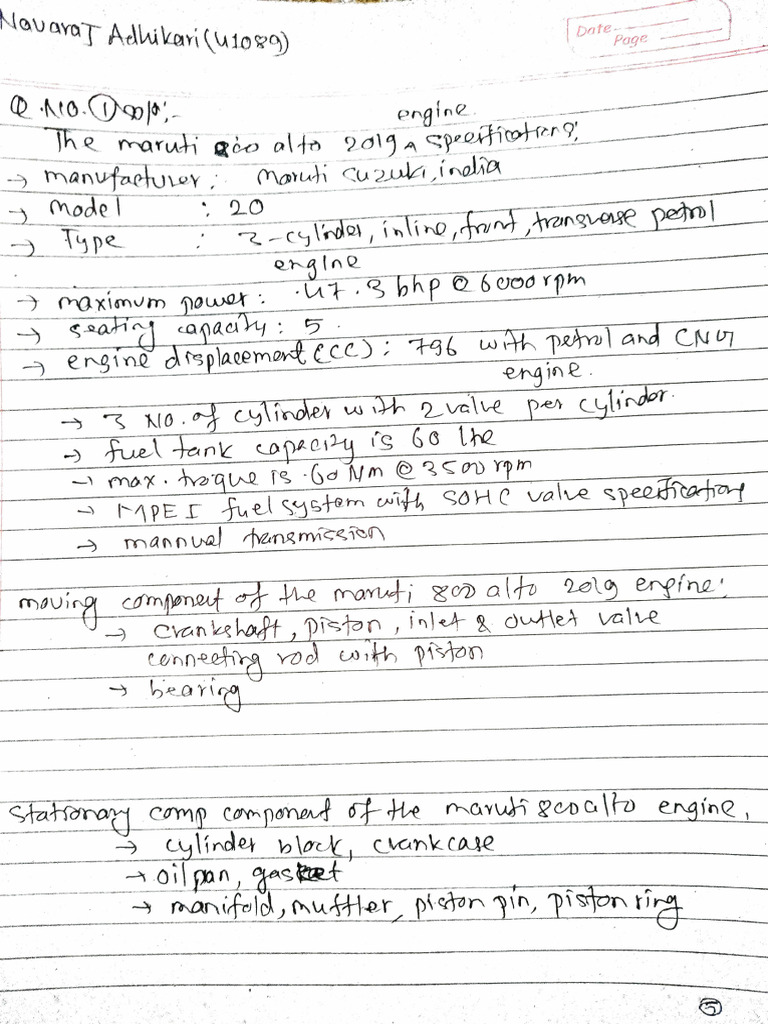 Navaraj Adhikari (41089)
Date
Page
Q.NO.① solo:-
engine
The maruti 800 alto 2019 ^ specifications:
→ manufacturer: Maruti suzuki, india
→ Model : 20
→ Type : 3-cylinder, inline, front, transverse petrol
engine
→ maximum power: .47.3 bhp @ 6000 rpm
→ seating capacity: 5.
→ engine displacement (CC): 796 with petrol and CNG
engine.
→ 3 NO. of cylinder with 2 valve per cylinder.
→ fuel tank capacity is 60 litre
→ max. troque is .60 Nm @ 3500 rpm
→ MPEI fuel system with SOHC valve specifications
→ mannual transmission
moving component of the maruti 800 alto 2019 engine:
→ crankshaft, piston, inlet & outlet valve
connecting rod with piston
→ bearing
stationary comp component of the maruti 800 alto engine,
→ cylinder block, crankcase
→ oil pan, gasket
→ manifold, muffler, piston pin, piston ring
⑤